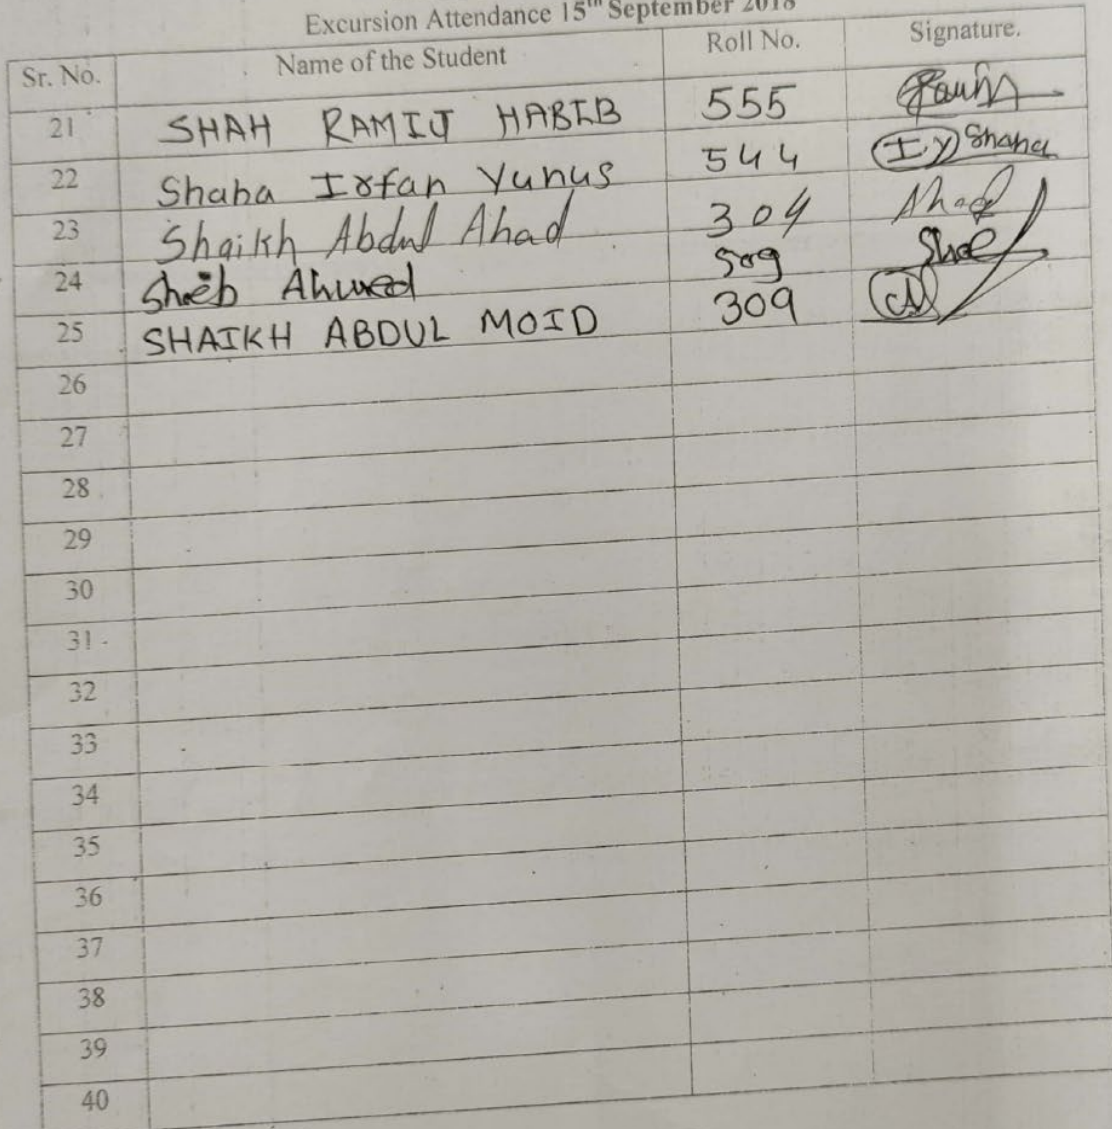 Excursion Attendance 15th September 2018
Sr. No. Name of the Student Roll No. Signature.
21 SHAH RAMIJ HABIB 555
22 Shaha Irfan Yunus 544 I Y Shaha
23 Shaikh Abdul Ahad 304 Ahad
24 Shoeb Ahmed 509
25 SHAIKH ABDUL MOID 309
26
27
28
29
30
31
32
33
34
35
36
37
38
39
40